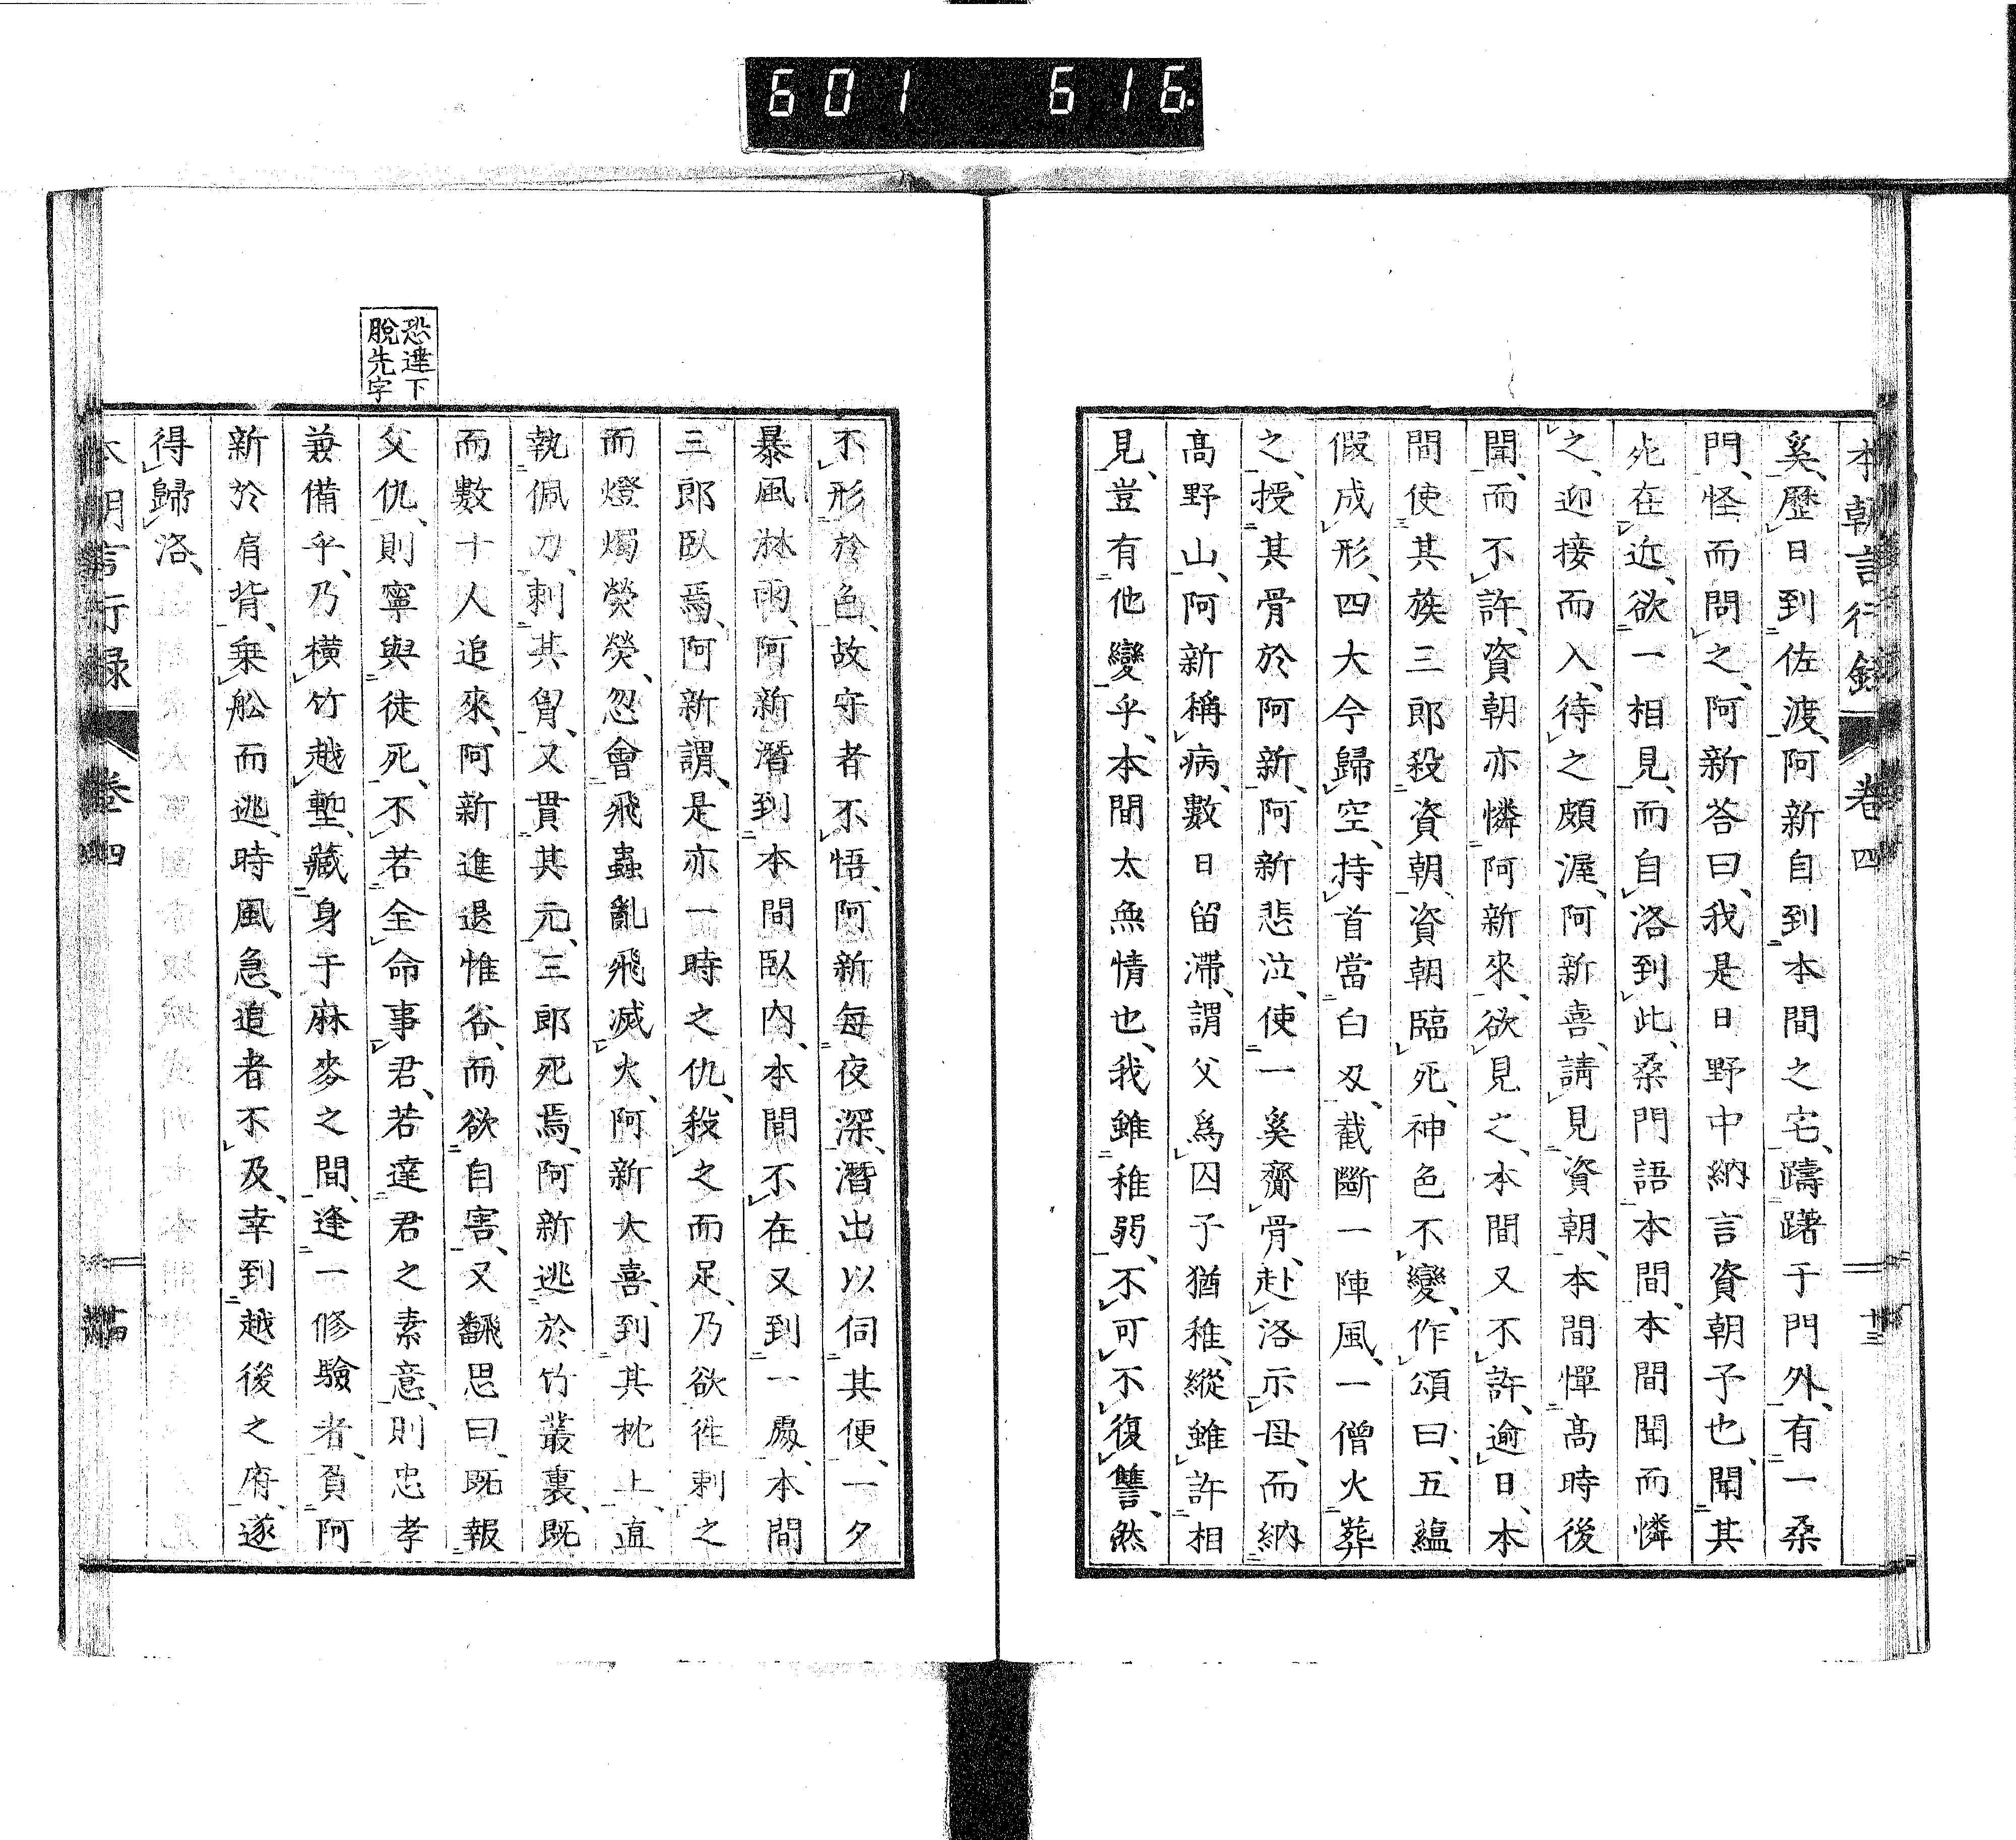 601 616.
本朝言行錄 卷四 十三
奚、歷日到佐渡、阿新自到本間之宅、躊躇于門外、有一桑
門、怪而問之、阿新荅曰、我是日野中納言資朝子也、聞其
死在近、欲一相見、而自洛到此、桑門語本間、本間聞而憐
之、迎接而入、待之頗渥、阿新喜、請見資朝、本間憚高時後
聞、而不許、資朝亦憐阿新來、欲見之、本間又不許、逾日、本
間使其族三郎殺資朝、資朝臨死、神色不變、作頌曰、五蘊
假成形、四大今歸空、持首當白刃、截斷一陣風、一僧火葬
之、授其骨於阿新、阿新悲泣、使一奚齎骨、赴洛示母、而納
高野山、阿新稱病、數日留滯、謂父爲囚子猶稚、縱雖許相
見、豈有他變乎、本間太無情也、我雖稚弱、不可不復讐、然
不形於色、故守者不悟、阿新每夜深、潛出以伺其便、一夕
暴風淋雨、阿新潛到本間臥內、本間不在又到一處、本間
三郎臥焉、阿新謂、是亦一時之仇、殺之而足、乃欲徃刺之
而燈燭熒熒、忽會飛蟲亂飛滅火、阿新大喜、到其枕上、直
執佩刀、刺其胷、又貫其元、三郎死焉、阿新逃於竹叢裏、既
而數十人追來、阿新進退惟谷、而欲自害、又翻思曰、既報
恐達下
脫先字
父仇、則寧與徒死、不若全命事君、若達君之素意、則忠孝
兼備乎、乃橫竹越塹、藏身于麻麥之間、逢一修驗者、負阿
新於肩背、乗舩而逃、時風急、追者不及、幸到越後之府、遂
得歸洛、
本朝言行錄 卷四 十四